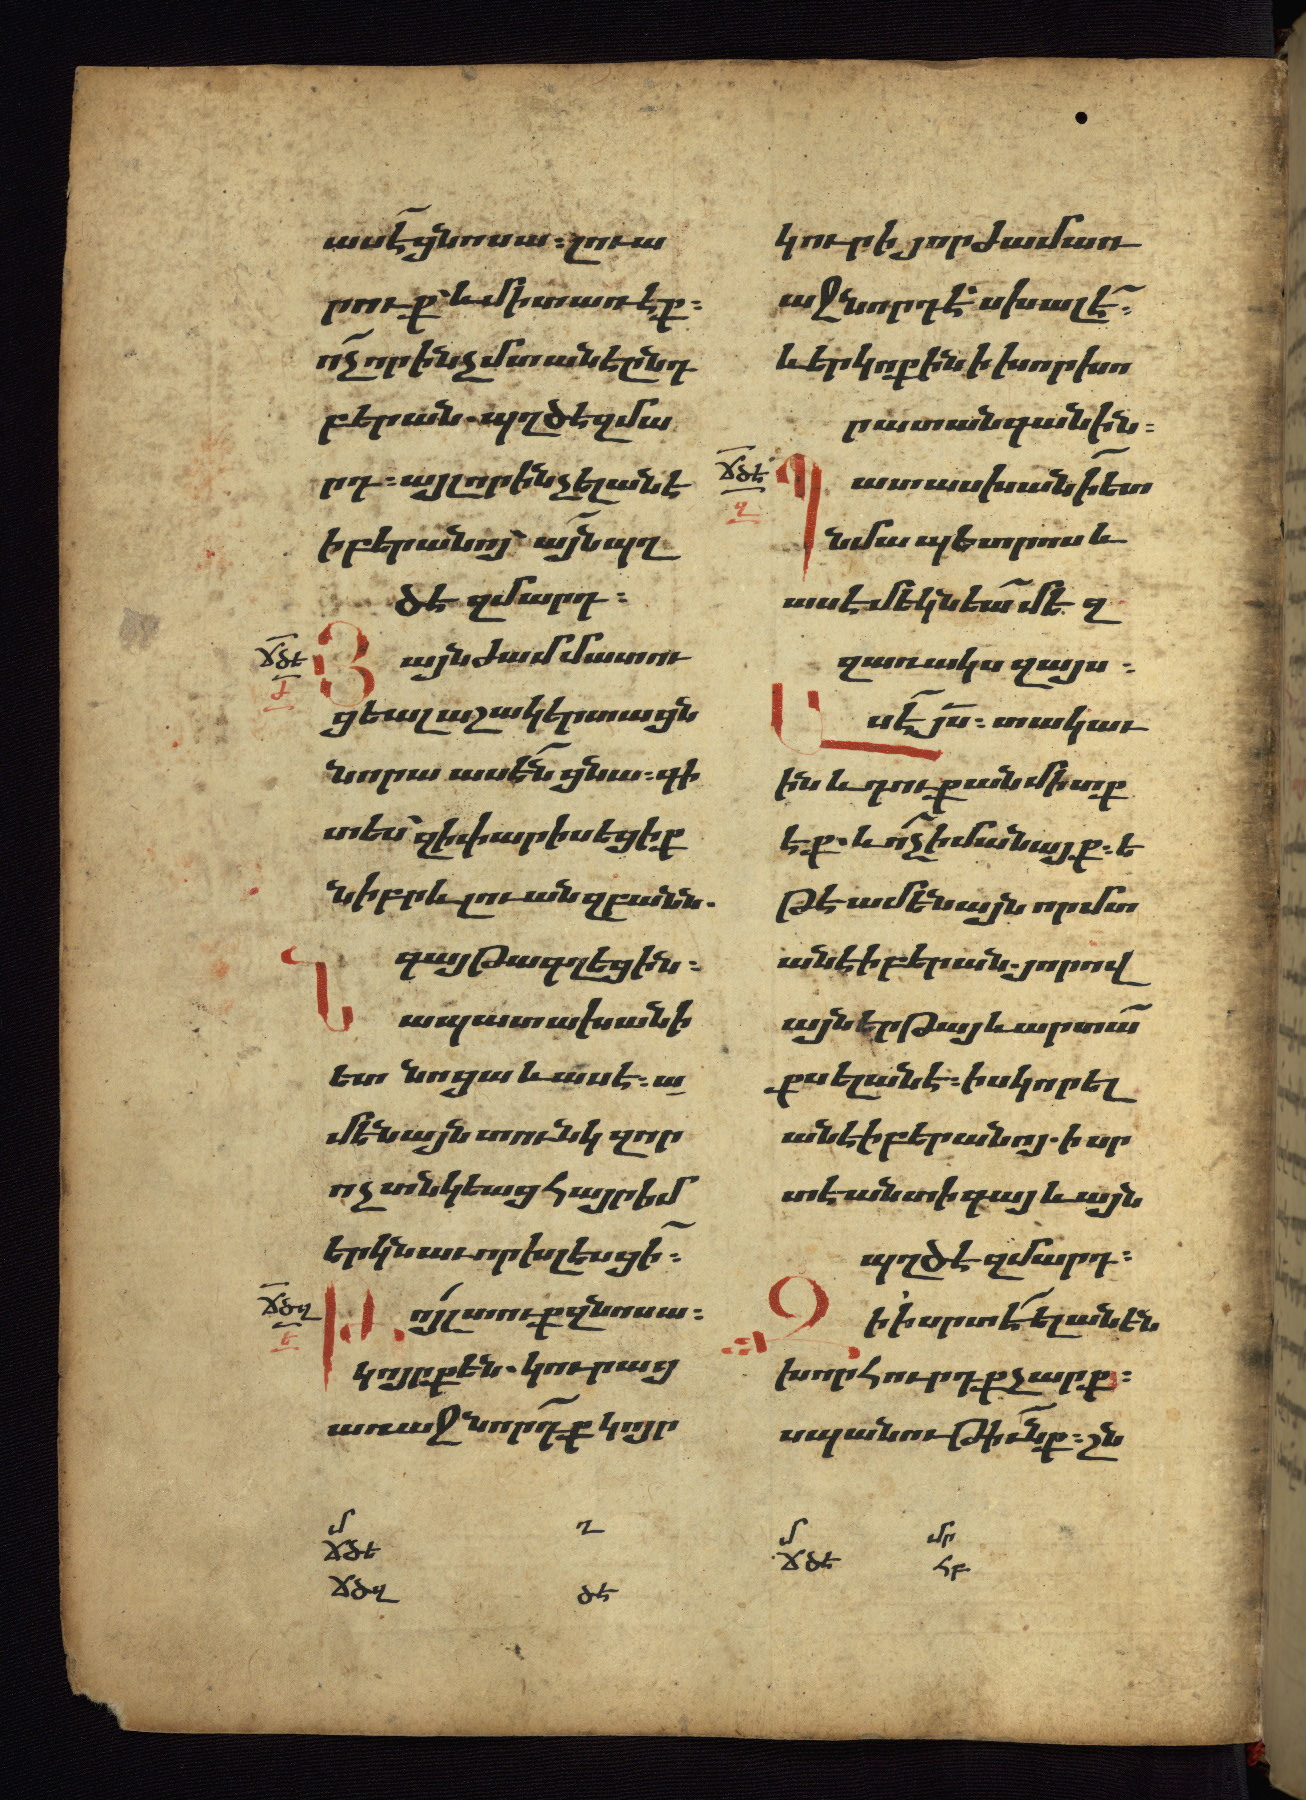 ասէ ցնոսա։ լուա
րուք՝ և ի միտ առէք։
ոչ որ ինչ մտանէ ընդ
բերան. պղծէ զմա
րդ։ այլ որ ինչ ելանէ
ի բերանոյ՝ այն պղ
ծէ զմարդ։
ճծե
Յայնժամ մատու
ցեալ աշակերտացն
նորա ասեն ցնա։ գի
տես՝ զի փարիսեցիք
ն իբրև լուան զբանն.
գայթագղեցին։
Նա պատասխանի
ետ նոցա և ասէ։ ա
մենայն տունկ զոր
ոչ տնկեաց հայր իմ
երկնաւոր խլեսցի։
ճծզ
ե
Թոյլ տուք դնոսա։
կոյրք են. կուրաց
առաջնորդք կոյր
մ
ճծե
ճծզ
ղ
ծե
կուրի յորժամ առ
աջնորդէ՝ սխալէ։
և երկոքին ի խորխո
րատ անկանին։
ճծե
Պատասխանի ետ
նմա պետրոս և
ասէ մեկնեա մեզ
զառակս զայս։
Ասէ յս։ տակաւ
ին և դուք անմիտք
էք. և ոչ իմանայք։ ե
թէ ամենայն որ մտ
անէ ի բերան. յորովայ
այն երթայ և արտա
քս ելանէ։ իսկ որ ել
անէ ի բերանոյ. ի սր
տէ անտի գայ և այն
պղծէ զմարդ։
Զի ի սրտէ ելանեն
խորհուրդք չարք։
սպանութիւնք։ շն
մ
ճծե
մր
հբ